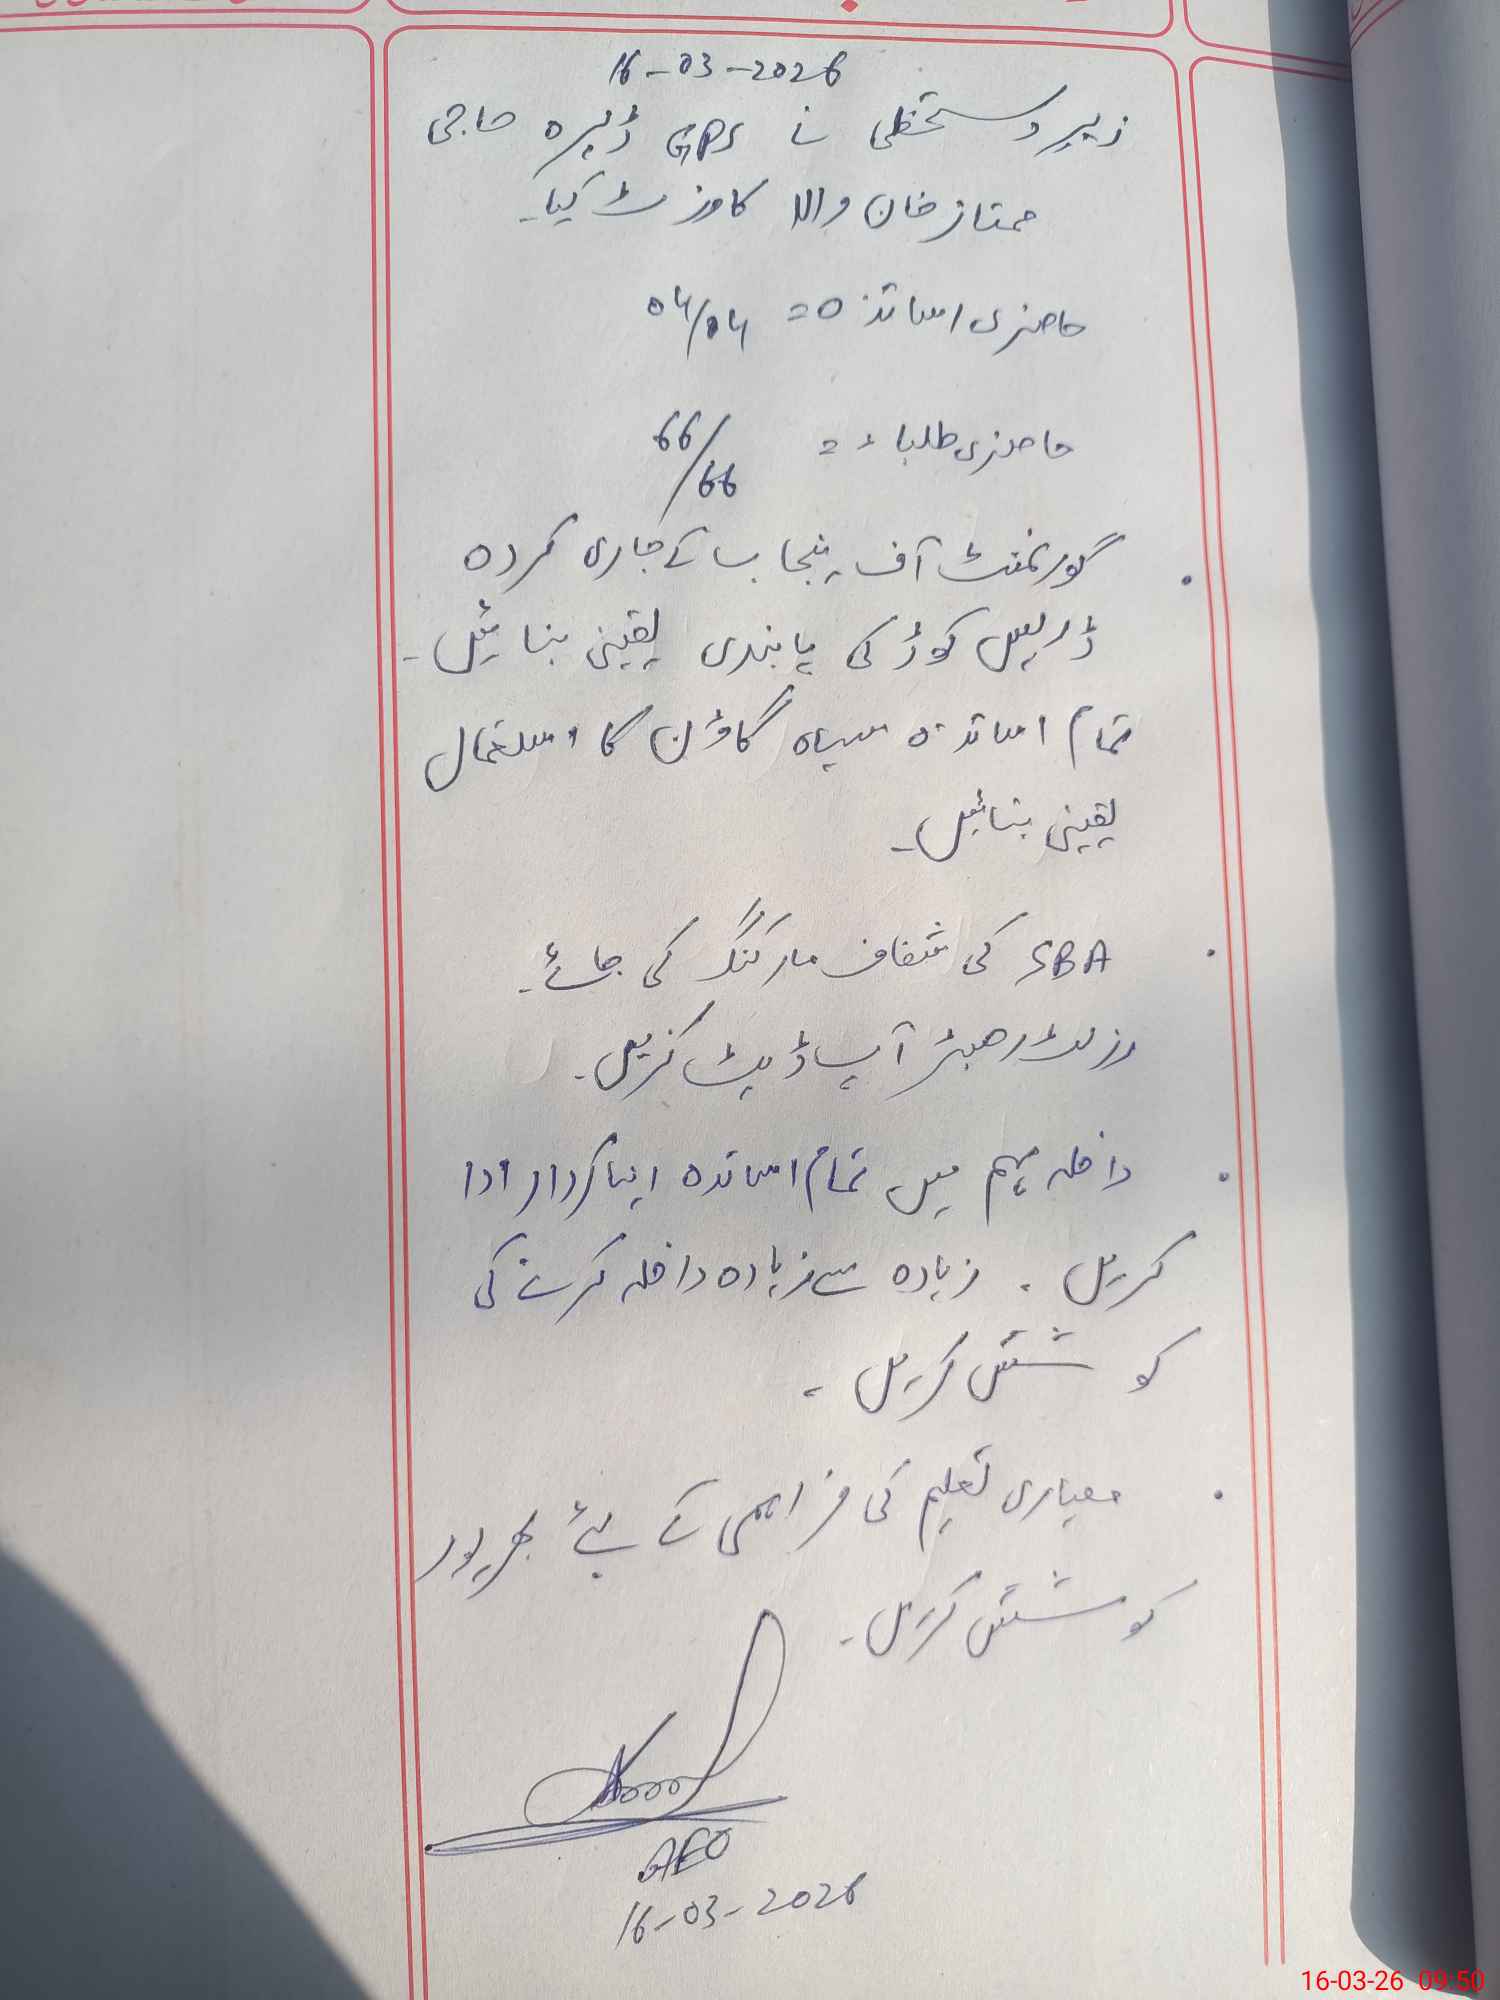 16-03-2026
زیر دستخطی نے GPS ڈیرہ حاجی
ممتاز خان والا کا وزٹ کیا۔
حاضری اساتذہ = 04/04
حاضری طلباء = 66/66
• گورنمنٹ آف پنجاب کے جاری کردہ
ڈریس کوڈ کی پابندی یقینی بنائیں۔
تمام اساتذہ سیاہ گاؤن کا استعمال
یقینی بنائیں۔
• SBA کی شفاف مارکنگ کی جائے۔
رزلٹ رجسٹر اپ ڈیٹ کریں۔
• داخلہ مہم میں تمام اساتذہ اپنا کردار ادا
کریں۔ زیادہ سے زیادہ داخلہ کرنے کی
کوشش کریں۔
• معیاری تعلیم کی فراہمی کے لیئے بھرپور
کوشش کریں۔
AEO
16-03-2026
16-03-26 09:50